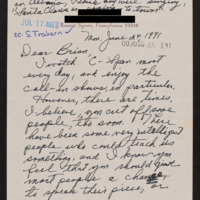 JUL 17 REC'D
cc: S Trabern
Pennsylvania
Mon June 24, 1991
Dear Brian,
I watch "C-Span most
every day, and enjoy the
call-in shows, in particular.
However, there are times
I believe, you cut off some
people too soon. There
have been some very intelligent
people who could teach us
something, and I know you
feel that you should give
most people a chance
to speak their piece, or